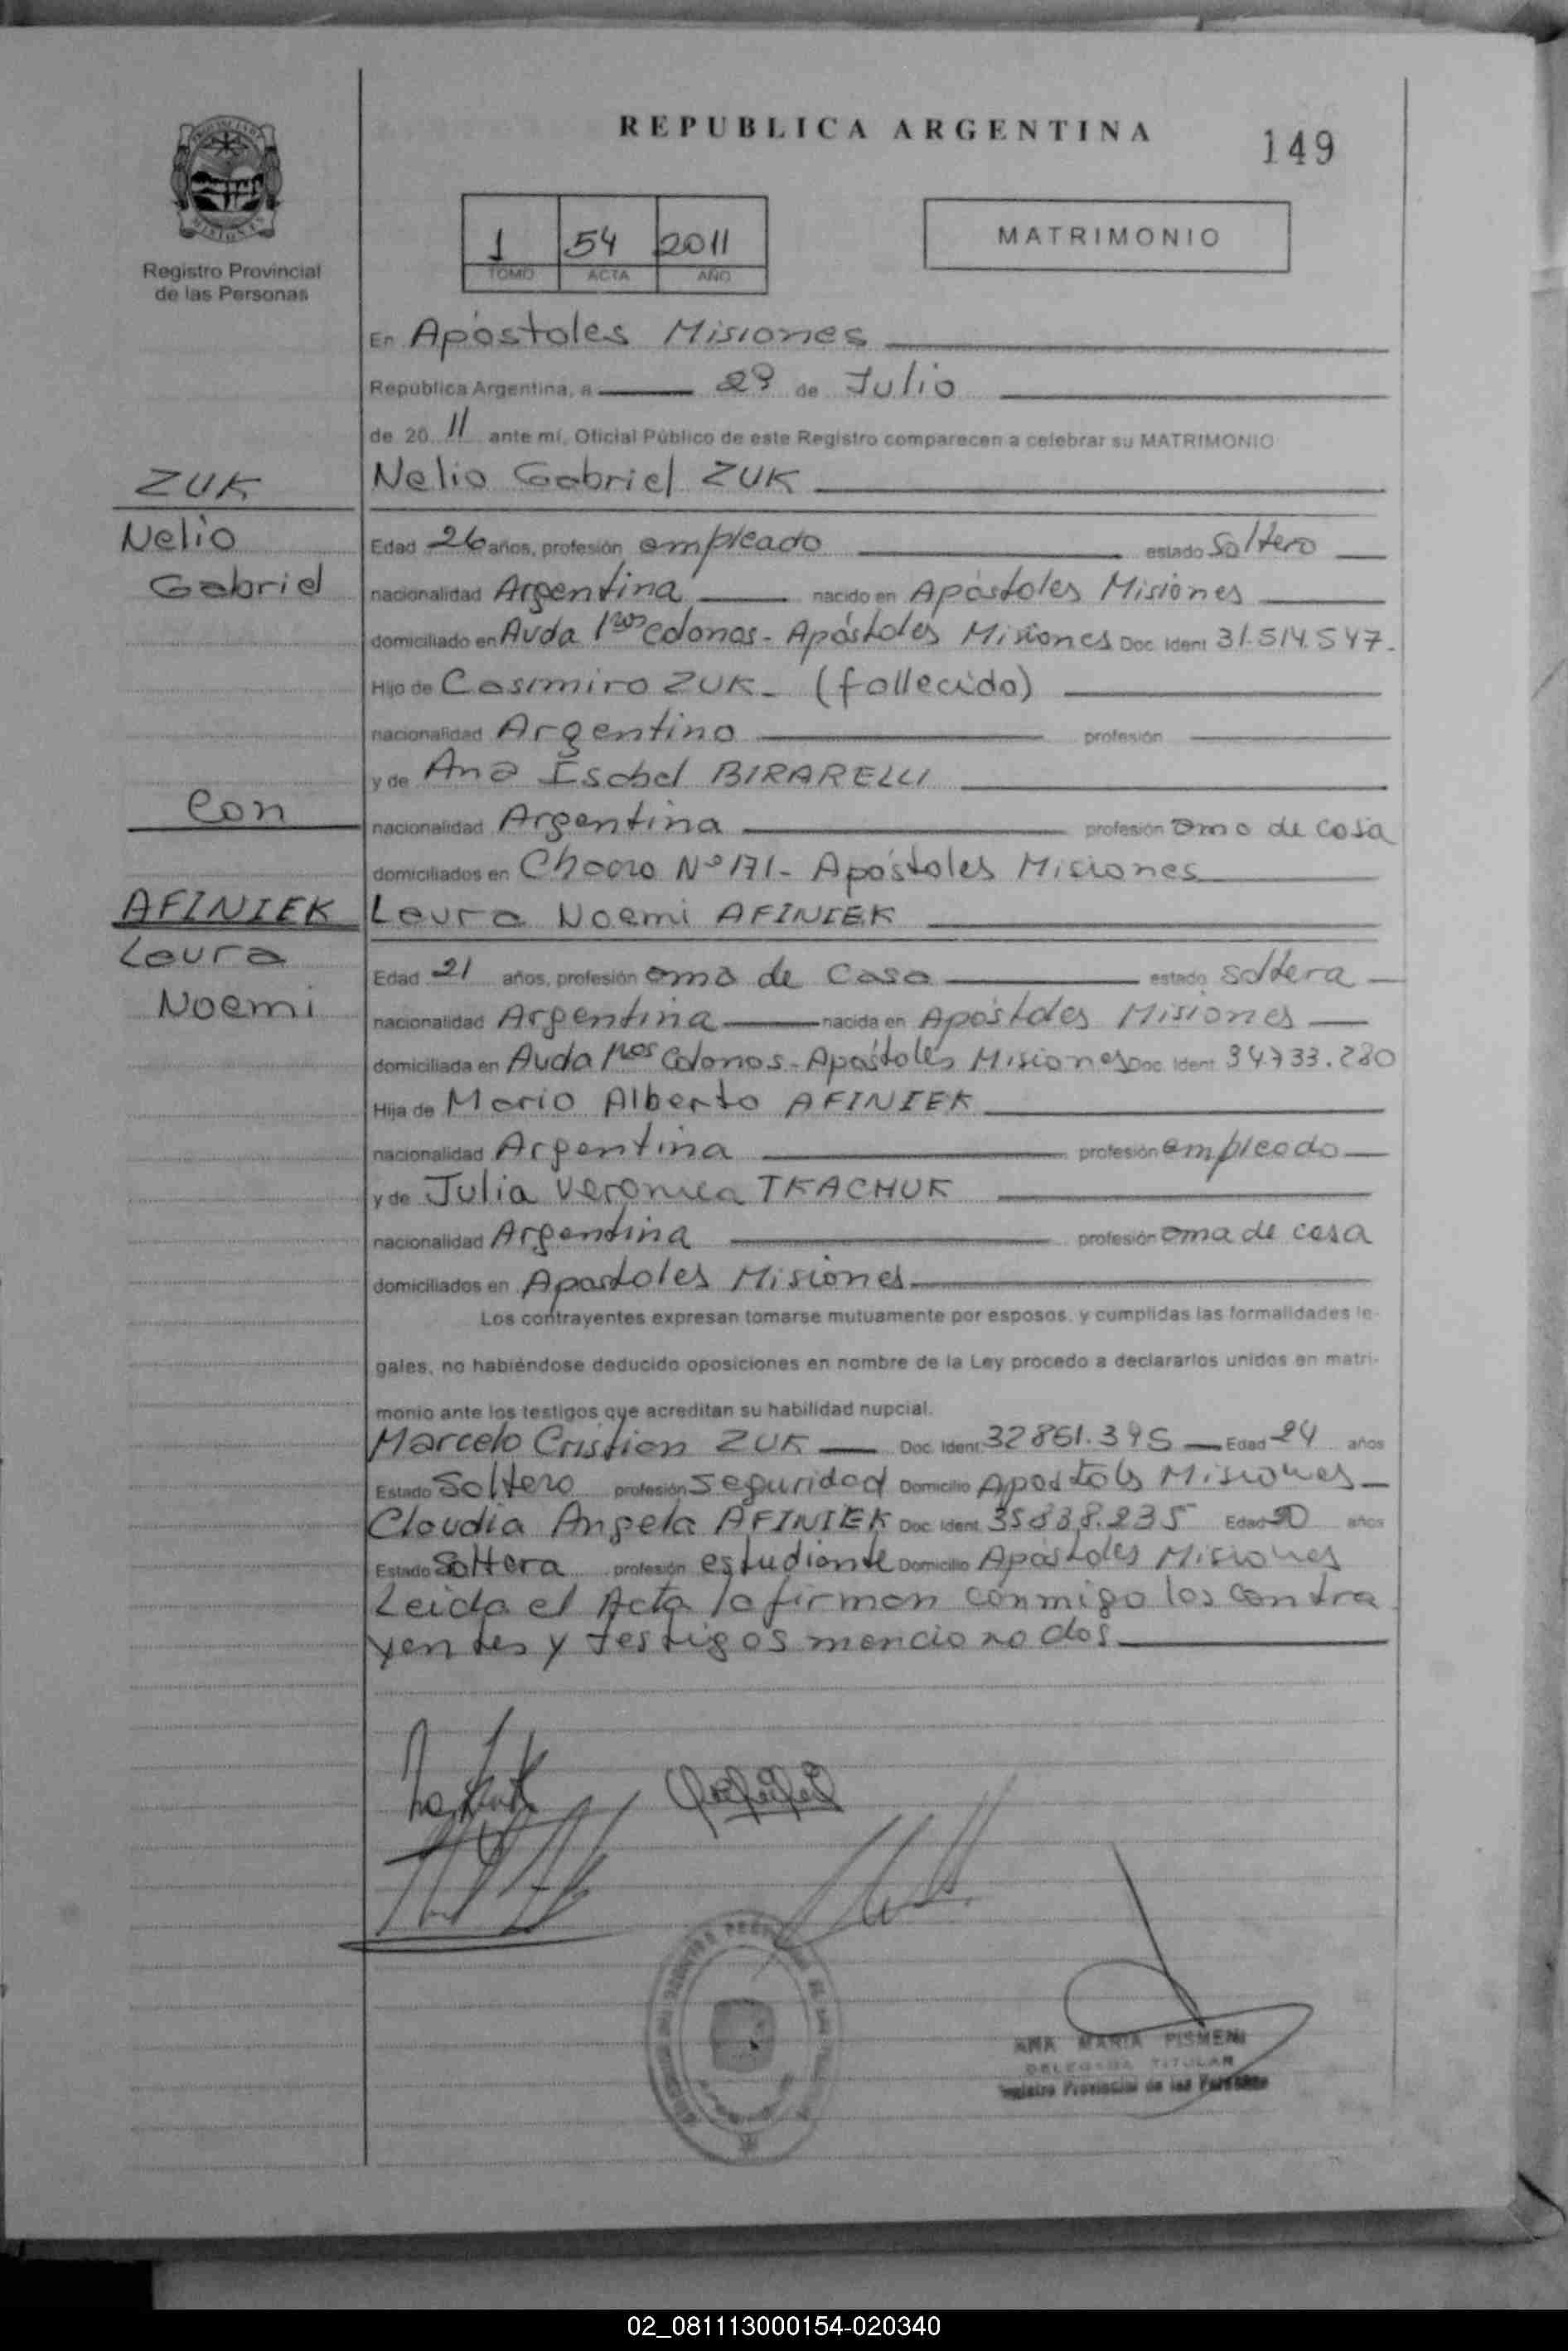 REPUBLICA ARGENTINA
149
1 54 2011
TOMO ACTA AÑO
MATRIMONIO
Registro Provincial
de las Personas
En Apóstoles Misiones
República Argentina, a 29 de Julio
de 20 11 ante mí, Oficial Público de este Registro comparecen a celebrar su MATRIMONIO
ZUK
Nelio Gabriel ZUK
Nelio
Edad 26 años, profesión empleado estado Soltero
Gabriel
nacionalidad Argentina nacido en Apóstoles Misiones
domiciliado en Avda 1ros Colonos - Apóstoles Misiones Doc. Ident 31.514.547.
Hijo de Casimiro ZUK - (fallecido)
nacionalidad Argentino profesión
y de Ana Isabel BIRARELLI
Con
nacionalidad Argentina profesión ama de casa
domiciliados en Chacra Nº 171 - Apóstoles Misiones
AFINIEK
Laura Noemi AFINIEK
Laura
Edad 21 años, profesión ama de Casa estado soltera
Noemi
nacionalidad Argentina nacida en Apóstoles Misiones
domiciliada en Avda 1ros Colonos - Apóstoles Misiones Doc. Ident 34.733.280
Hija de Mario Alberto AFINIEK
nacionalidad Argentina profesión empleado
y de Julia Veronica TKACHUK
nacionalidad Argentina profesión ama de casa
domiciliados en Apostoles Misiones
Los contrayentes expresan tomarse mutuamente por esposos, y cumplidas las formalidades le-
gales, no habiéndose deducido oposiciones en nombre de la Ley procedo a declararlos unidos en matri-
monio ante los testigos que acreditan su habilidad nupcial.
Marcelo Cristian ZUK Doc. Ident. 32861.395 Edad 24 años
Estado Soltero profesión Seguridad Domicilio Apostoles Misiones
Claudia Angela AFINIEK Doc. Ident. 35838.235 Edad 20 años
Estado Soltera profesión estudiante Domicilio Apóstoles Misiones
Leida el Acta la firman conmigo los contra
yentes y testigos mencionados
ANA MARIA PISMENI
DELEGADA TITULAR
Registro Provincial de las Personas
02_081113000154-020340